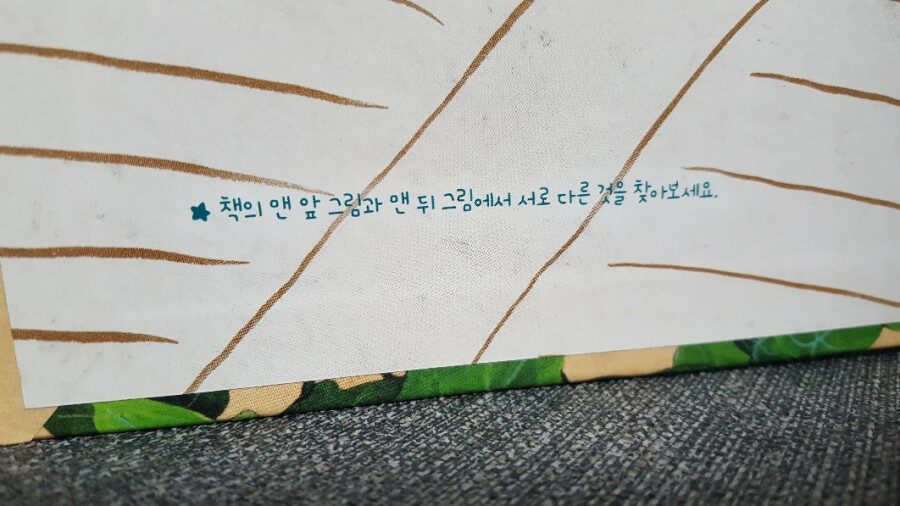 ★ 책의 맨 앞 그림과 맨 뒤 그림에서 서로 다른 것을 찾아보세요.